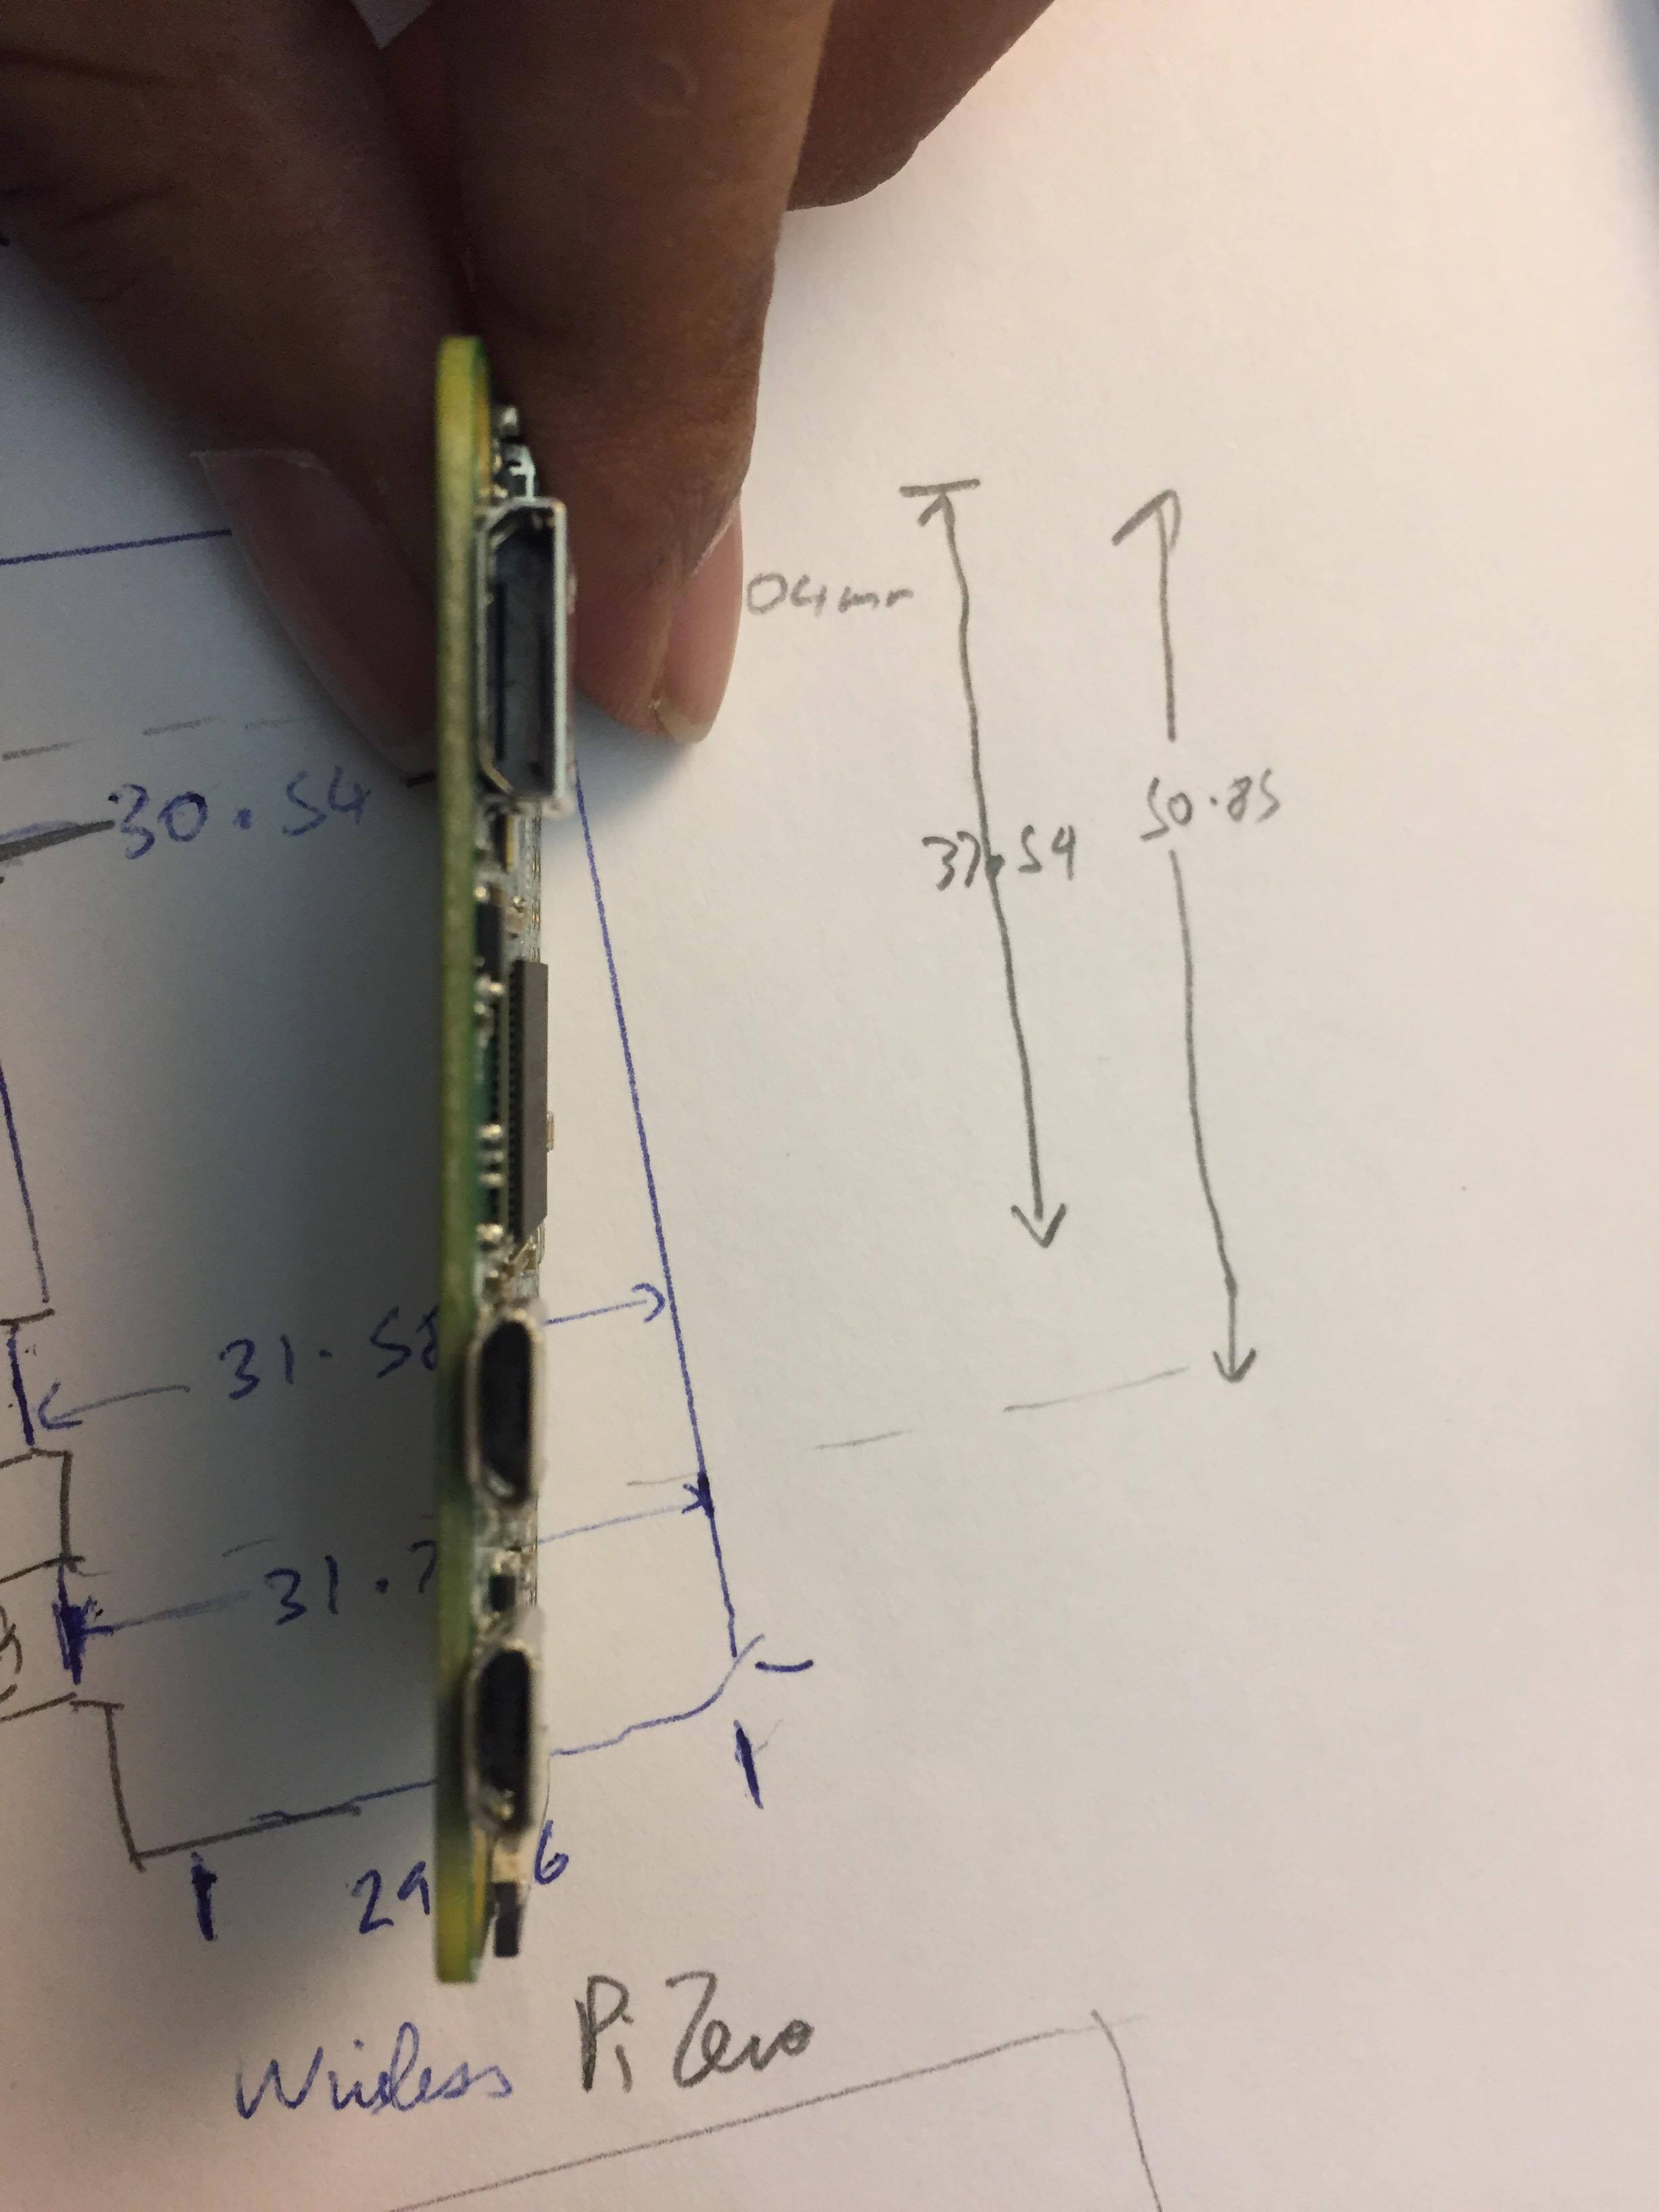 04mm
30.54
37.54
50.85
31.58
31.7
29 6
Wireless Pi Zero